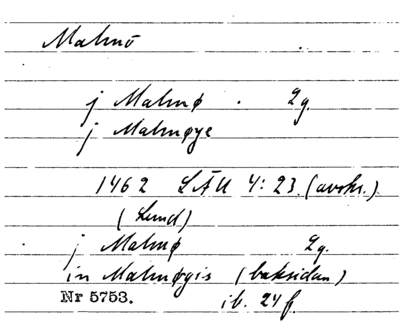 Malmö
j Malmø . 2g.
j Malmøye
1462 LÄU 4:23. (avskr.)
(Lund)
j Malmø 2g.
in Malmøgis (baksidan)
Nr 5753. ib. 24 f.